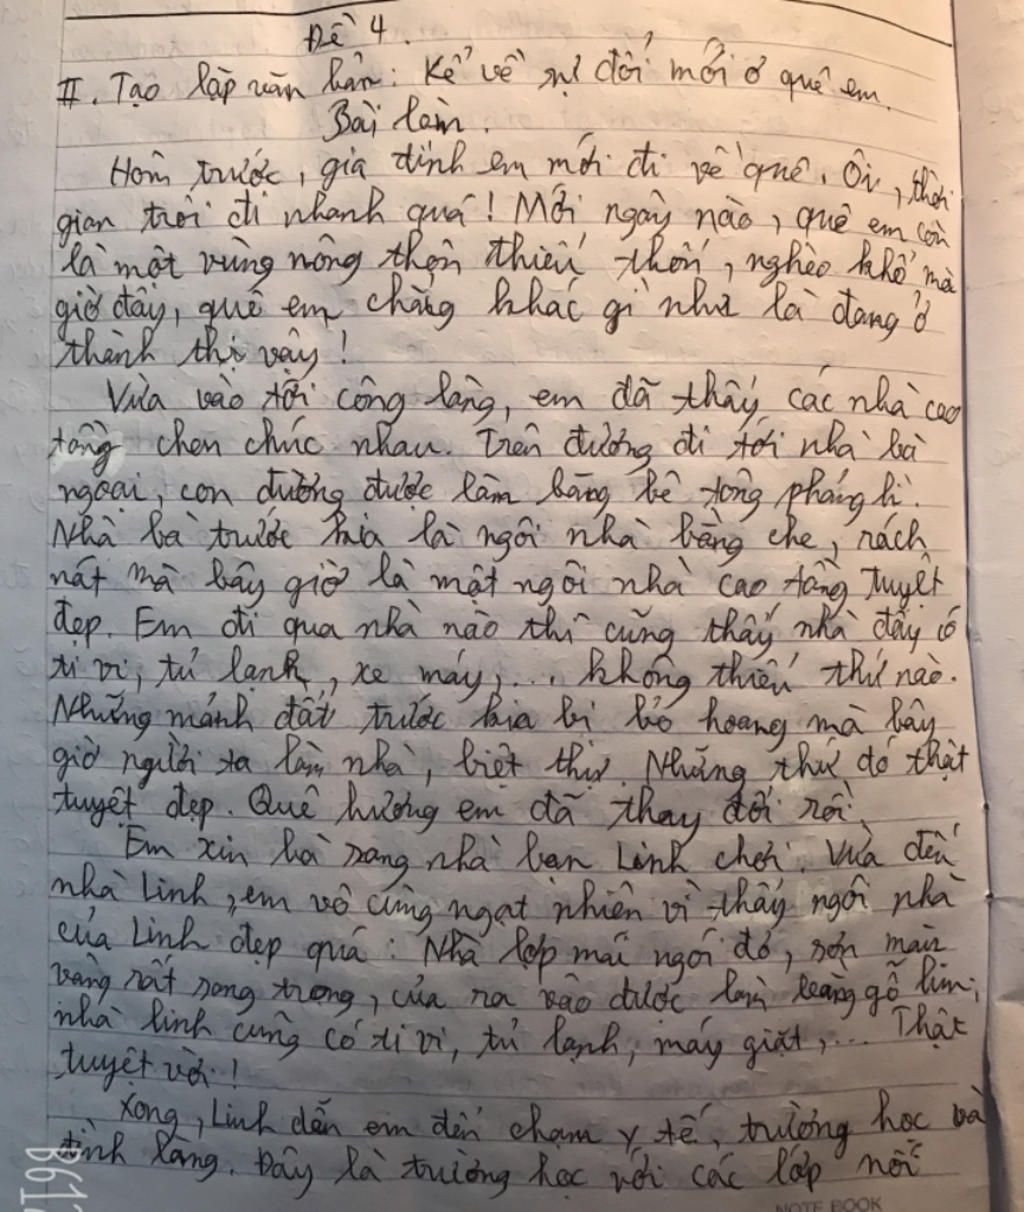 Đề 4.
II. Tạo lập văn bản: Kể về sự đổi mới ở quê em.
Bài làm.
Hôm trước, gia đình em mới đi về quê. Ôi, thời
gian trôi đi nhanh quá! Mới ngày nào, quê em còn
là một vùng nông thôn thiếu thốn, nghèo khổ mà
giờ đây, quê em chẳng khác gì như là đang ở
thành thị vậy!
Vừa vào tới cổng làng, em đã thấy các nhà cao
tầng chen chúc nhau. Trên đường đi tới nhà bà
ngoại, con đường được làm bằng bê tông phẳng lì.
Nhà bà trước kia là ngôi nhà bằng che, rách
nát mà bây giờ là một ngôi nhà cao tầng tuyệt
đẹp. Em đi qua nhà nào thì cũng thấy nhà đấy có
ti vi, tủ lạnh, xe máy,... không thiếu thứ nào.
Những mảnh đất trước kia bị bỏ hoang mà bây
giờ người ta làm nhà, biệt thự. Những thứ đó thật
tuyệt đẹp. Quê hương em đã thay đổi rồi.
Em xin bà sang nhà bạn Linh chơi. Vừa đến
nhà Linh, em vô cùng ngạt nhiên vì thấy ngôi nhà
của Linh đẹp quá: Nhà lợp mái ngói đỏ, sơn màu
vàng rất sang trọng, cửa ra vào được làm bằng gỗ lim;
nhà linh cũng có ti vi, tủ lạnh, máy giặt,... Thật
tuyệt vời!
Xong, Linh dẫn em đến chạm y tế, trường học và
đình làng. Đây là trường học với các lớp nối
NOTE BOOK